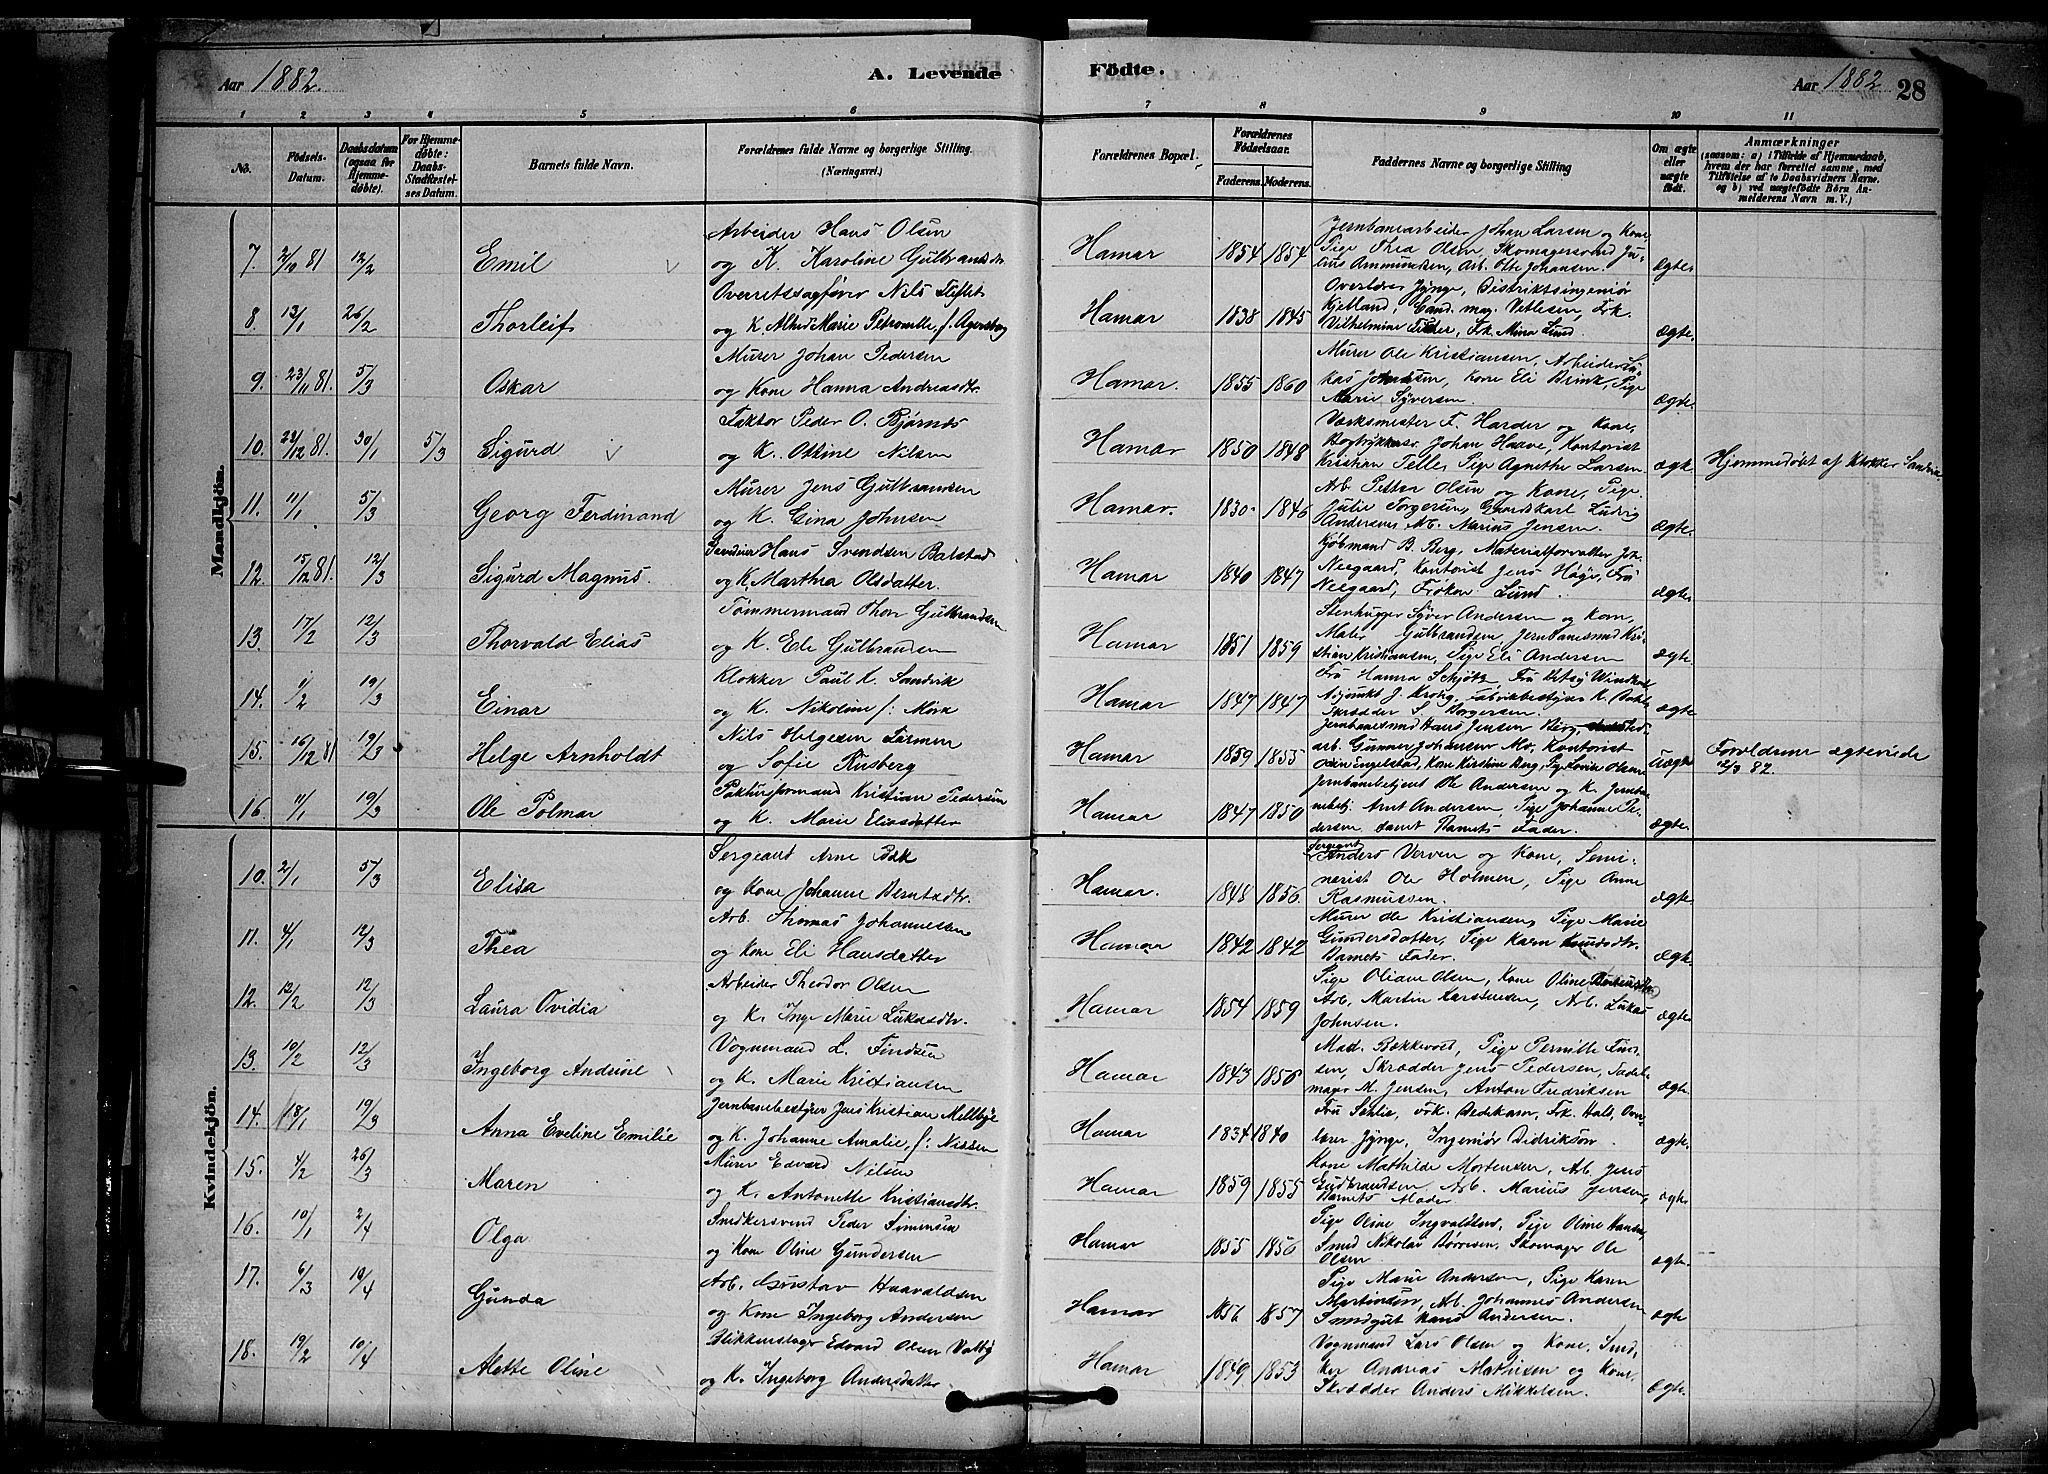 Aar 1882.
A. Levende
Födte.
Aar 1882
28
1 2 3 4 5 6 7 8 9 10 11
No.
Födsels-Datum.
Daabsdatum (ogsaa for Hjemme-døbte).
For Hjemme-døbte: Daabs-Stadfæstel-ses Datum.
Barnets fulde Navn.
Forældrenes fulde Navne og borgerlige Stilling.
(Næringsvei.)
Forældrenes Bopæl.
Forældrenes Födselsaar.
Faderens. Moderens.
Faddernes Navne og borgerlige Stilling
Om ægte eller uægte født.
Anmærkninger
(saasom: a) i Tilfælde af Hjemmedaab, hvem der har forrettet samme, med Tilføielse af to Daabsvidners Navne, og b) ved uægtefödte Börn Anmelderens Navn m. V.)
Mandkjön.
7. 2/10 81 12/2 Emil
Arbeider Hans Olsen
og K. Karoline Gulbrandsdr.
Hamar 1854 1854
Jernbanearbeider Johan Larsen og Kone
Pige Thea Olsen, Skomagersvend Ju-
lius Amundsen, Arb. Otto Johansen.
ægte
8. 13/1 26/2 Thorleif
Overretssagfører Nils
og K Marie Petronelle, f.
Hamar 1838 1845
Overlærer Jynge, Distriktsingeniør
Kjelland, Cand. mag. Vetlesen, Frk.
Vilhelmine Frk. Mina Lund.
ægte.
9. 23/11 81. 5/3 Oskar
Murer Johan Pedersen
og Kone Hanna Andreasdtr.
Hamar. 1855 1860
Murer Ole Kristiansen, Arbeider Lu
kas Johnsen, Kone Eli Brink, Pige
Marie Syversen.
ægte.
10. 23/12 81. 30/1 5/3 Sigurd
Faktor Peder O. Bjørnås
og K. Ottine Nilsen
Hamar 1850 1848
Værksmester F. Harder og Kone,
Bogtrykker Johan Haave, Kontorist
Kristian Telle, Pige Agnethe Larsen
ægte
Hjemmedøbt af Klokker Sandvik
11. 11/1 5/3 Georg Ferdinand
Murer Jens Gulbrandsen
og K. Gina Johnsen
Hamar. 1830 1846
Arb Petter Olsen og Kone, Pige
Julie Torgersen, Gaardskarl Ludvig
Andersen Ab. Marius Jensen.
ægte
12. 15/12 81. 12/3 Sigurd Magnus.
Hans Svendsen Balstad
og K Marthea Olsdatter.
Hamar 1840 1847
Kjøbmand B. Berg, Materialforvalter Joh.
Neegaard, Kontorist Jens Høye, Fru
Neegaard, Frøken Lund.
ægte
13. 17/2 12/3 Thorvald Elias
Tømmermand Thor Gulbrandsen
og K. Eli Gulbrandsen
Hamar 1851 1859
Stenhugger Syver Andersen og Kone,
Maler Gulbrandsen, Jernbanesmed Kri-
stian Kristiansen, Pige Eli Andersen
ægte
14. 1/2 19/3 Einar
Klokker Paul K. Sandvik
og K. Nikoline f: Mørk
Hamar 1847 1847
Fru Hanna Schjøtz Fru Betsy
Adjunkt J. Krohg, Fabrikbestyrer K.
Skrædder S. Borgersen.
ægte
15. 16/12 81 19/3 Helge Arnholdt
Nils Helgesen Farmen
og Sofie Rusberg
Hamar 1859 1855
Jernbanesmed Hans Jensen Berg,
arb. Gunnar Johansen Mo, Kontorist
Engelstad, Kone Kirstine Berg, Pige Lovise Olsen
uægte
Forældrene ægteviede
12/3 82.
16. 11/1 19/3 Ole Polmar
Pakhusformand Kristian Pedersen
og K. Marie Eliasdatter
Hamar 1847 1850
Jernbanebetjent Ole Andersen og K. Jernba-
nebetj. Arnt Andersen, Pige Johanne Pe-
dersen samt Barnets Fader.
ægte.
Kvindekjön.
10. 2/1 5/3 Elisa
Sergeant Arne Bak
og Kone Johanne Berntsdtr.
Hamar. 1848 1856
Sergeant
Anders Verven og Kone, Semi-
narist Ole Holmen, Pige Anne
Rasmussen.
ægte.
11. 4/1 12/3 Thea
Arb. Thomas Johannesen
og Kone Eli Hansdatter
Hamar 1842 1842
Murer Ole Kristiansen, Pige Marie
Gundersdatter, Pige Karen Knudsdtr.
Barnets Fader.
ægte.
12. 12/2 12/3 Laura Ovidia
Arbeider Theodor Olsen
og K. Inge Marie Lukasdtr.
Hamar 1854 1859
Pige Oliane Olsen, Kone Oline
Arb. Martin Karstensen, Arb. Lukas
Johnsen.
ægte
13. 10/2 12/3 Ingeborg Andrine
Vognmand L. Findsen
og K. Marie Kristiansen
Hamar 1843 1856
Mad. Bækkevold, Pige Pernille Find-
sen, Skrædder Jens Pedersen, Sadel-
mager M. Jensen, Anton Fredriksen
ægte
14. 18/1 19/3 Anna Eveline Emilie
Jernbanebestyrer Jens Kristian Mellbye
og K. Johanne Amalie, f: Nissen
Hamar 1834 1840
Fru Sehlie, Frk. Dedekam, Frk. Hall, Over
lærer Jynge, Ingeniør Didrikson.
ægte.
15. 4/2 26/3 Maren
Murer Edvard Nilsen
og K. Antonette Kristiansdtr.
Hamar 1859 1855
Kone Mathilde Mortensen, Arb. Jens
Gudbrandsen, Arb. Marius Jensen,
Barnets Moder
ægte
16. 10/1 2/4 Olga
Snedkersvend Peder Simensen
og Kone Oline Gundersen
Hamar 1855 1856
Pige Oline Ingvaldsen, Pige Oline Hansen
Smed Nikolai Børresen, Skomager Ole
Olsen
ægte.
17. 6/3 10/4 Gunda
Arb. Gustav Haavaldsen
og Kone Ingeborg Andersen
Hamar 1856 1857
Pige Marie Andersen, Pige Karen
Martinsen, Arb. Johannes Andersen
Smedgut Hans Andersen.
ægte
18. 19/2 10/4 Alette Oline
Blikkenslager Edvard Olsen Valby
og K. Ingeborg Andersdatter
Hamar 1849 1853
Vognmand Lars Olsen og Kone, Sned
ker Andreas Mathisen og Kone
Skrædder Anders Mikkelsen.
ægte.